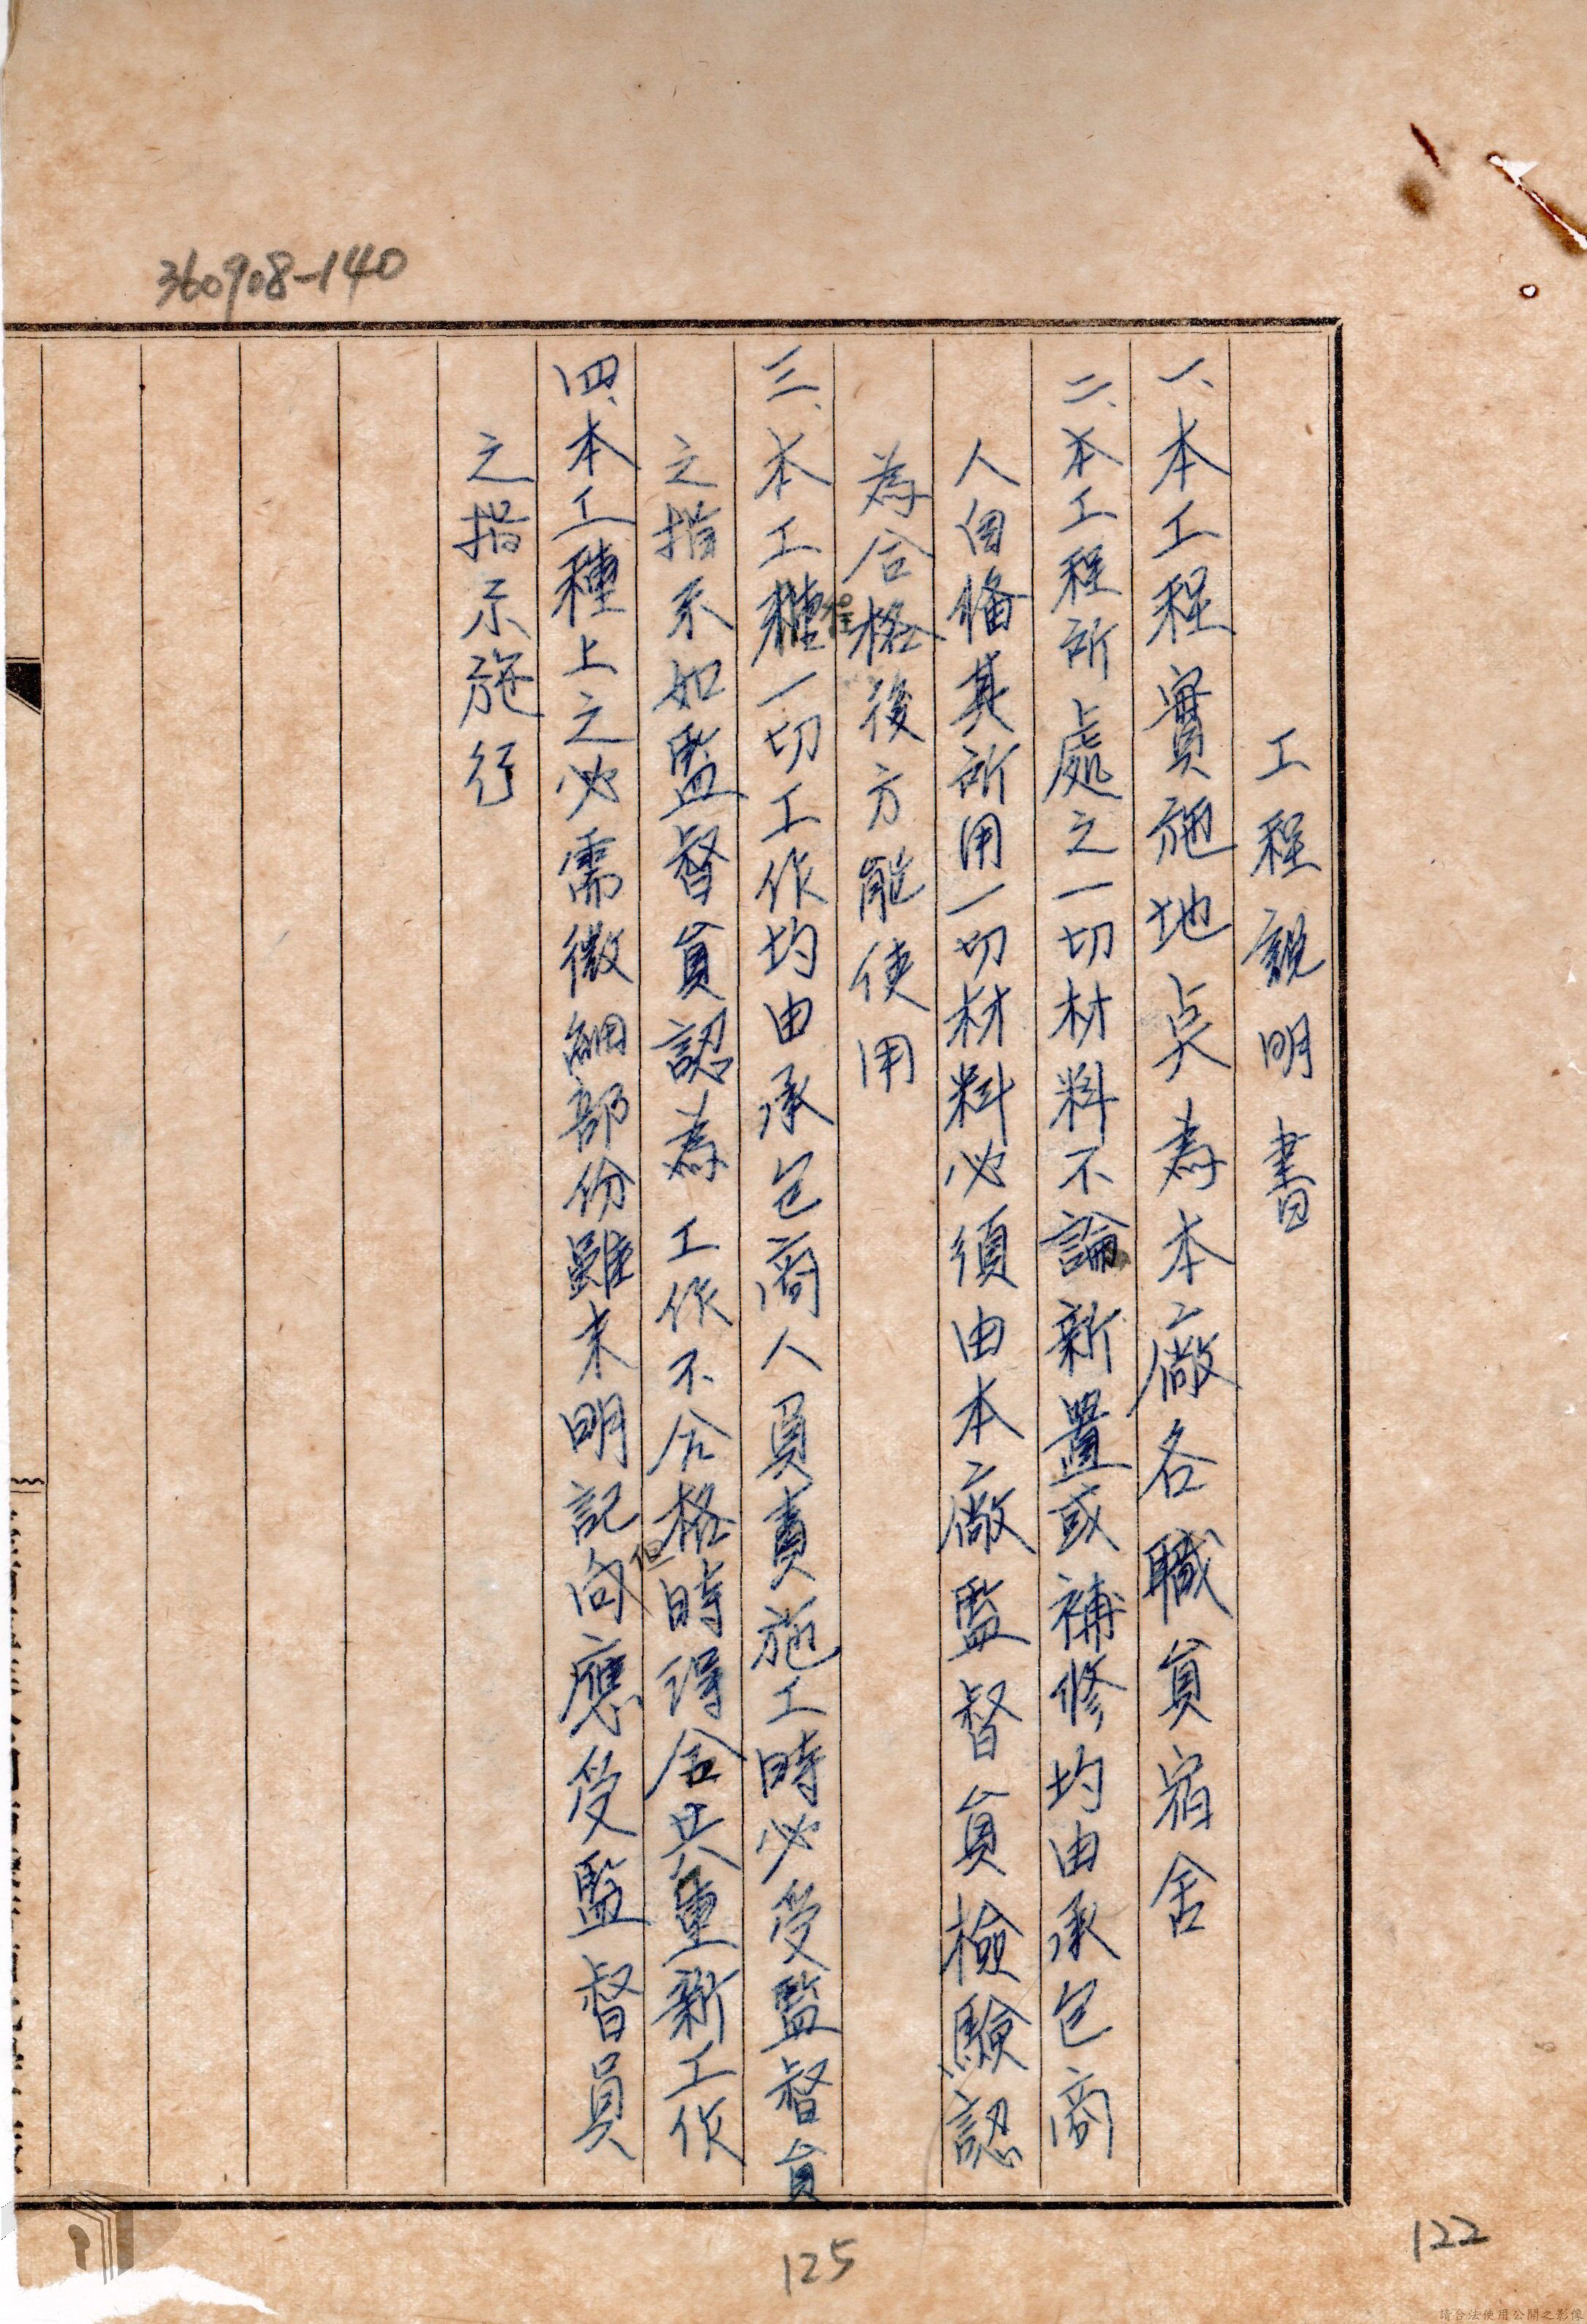 360908-140
工程說明書
一、本工程實施地点為本廠各職員宿舍
二、本工程所處之一切材料不論新置或補修均由承包商
人自備其所用一切材料必須由本廠監督員檢驗認
為合格後方能使用
三、本工種程一切工作均由承包商人員責施工時必受監督員
之指示如監督員認為工作不合格時得令其重新工作
四、本工種上之必需微細部份雖未明記向但應受監督員
之指示施行
125
122
請合法使用公開之影像